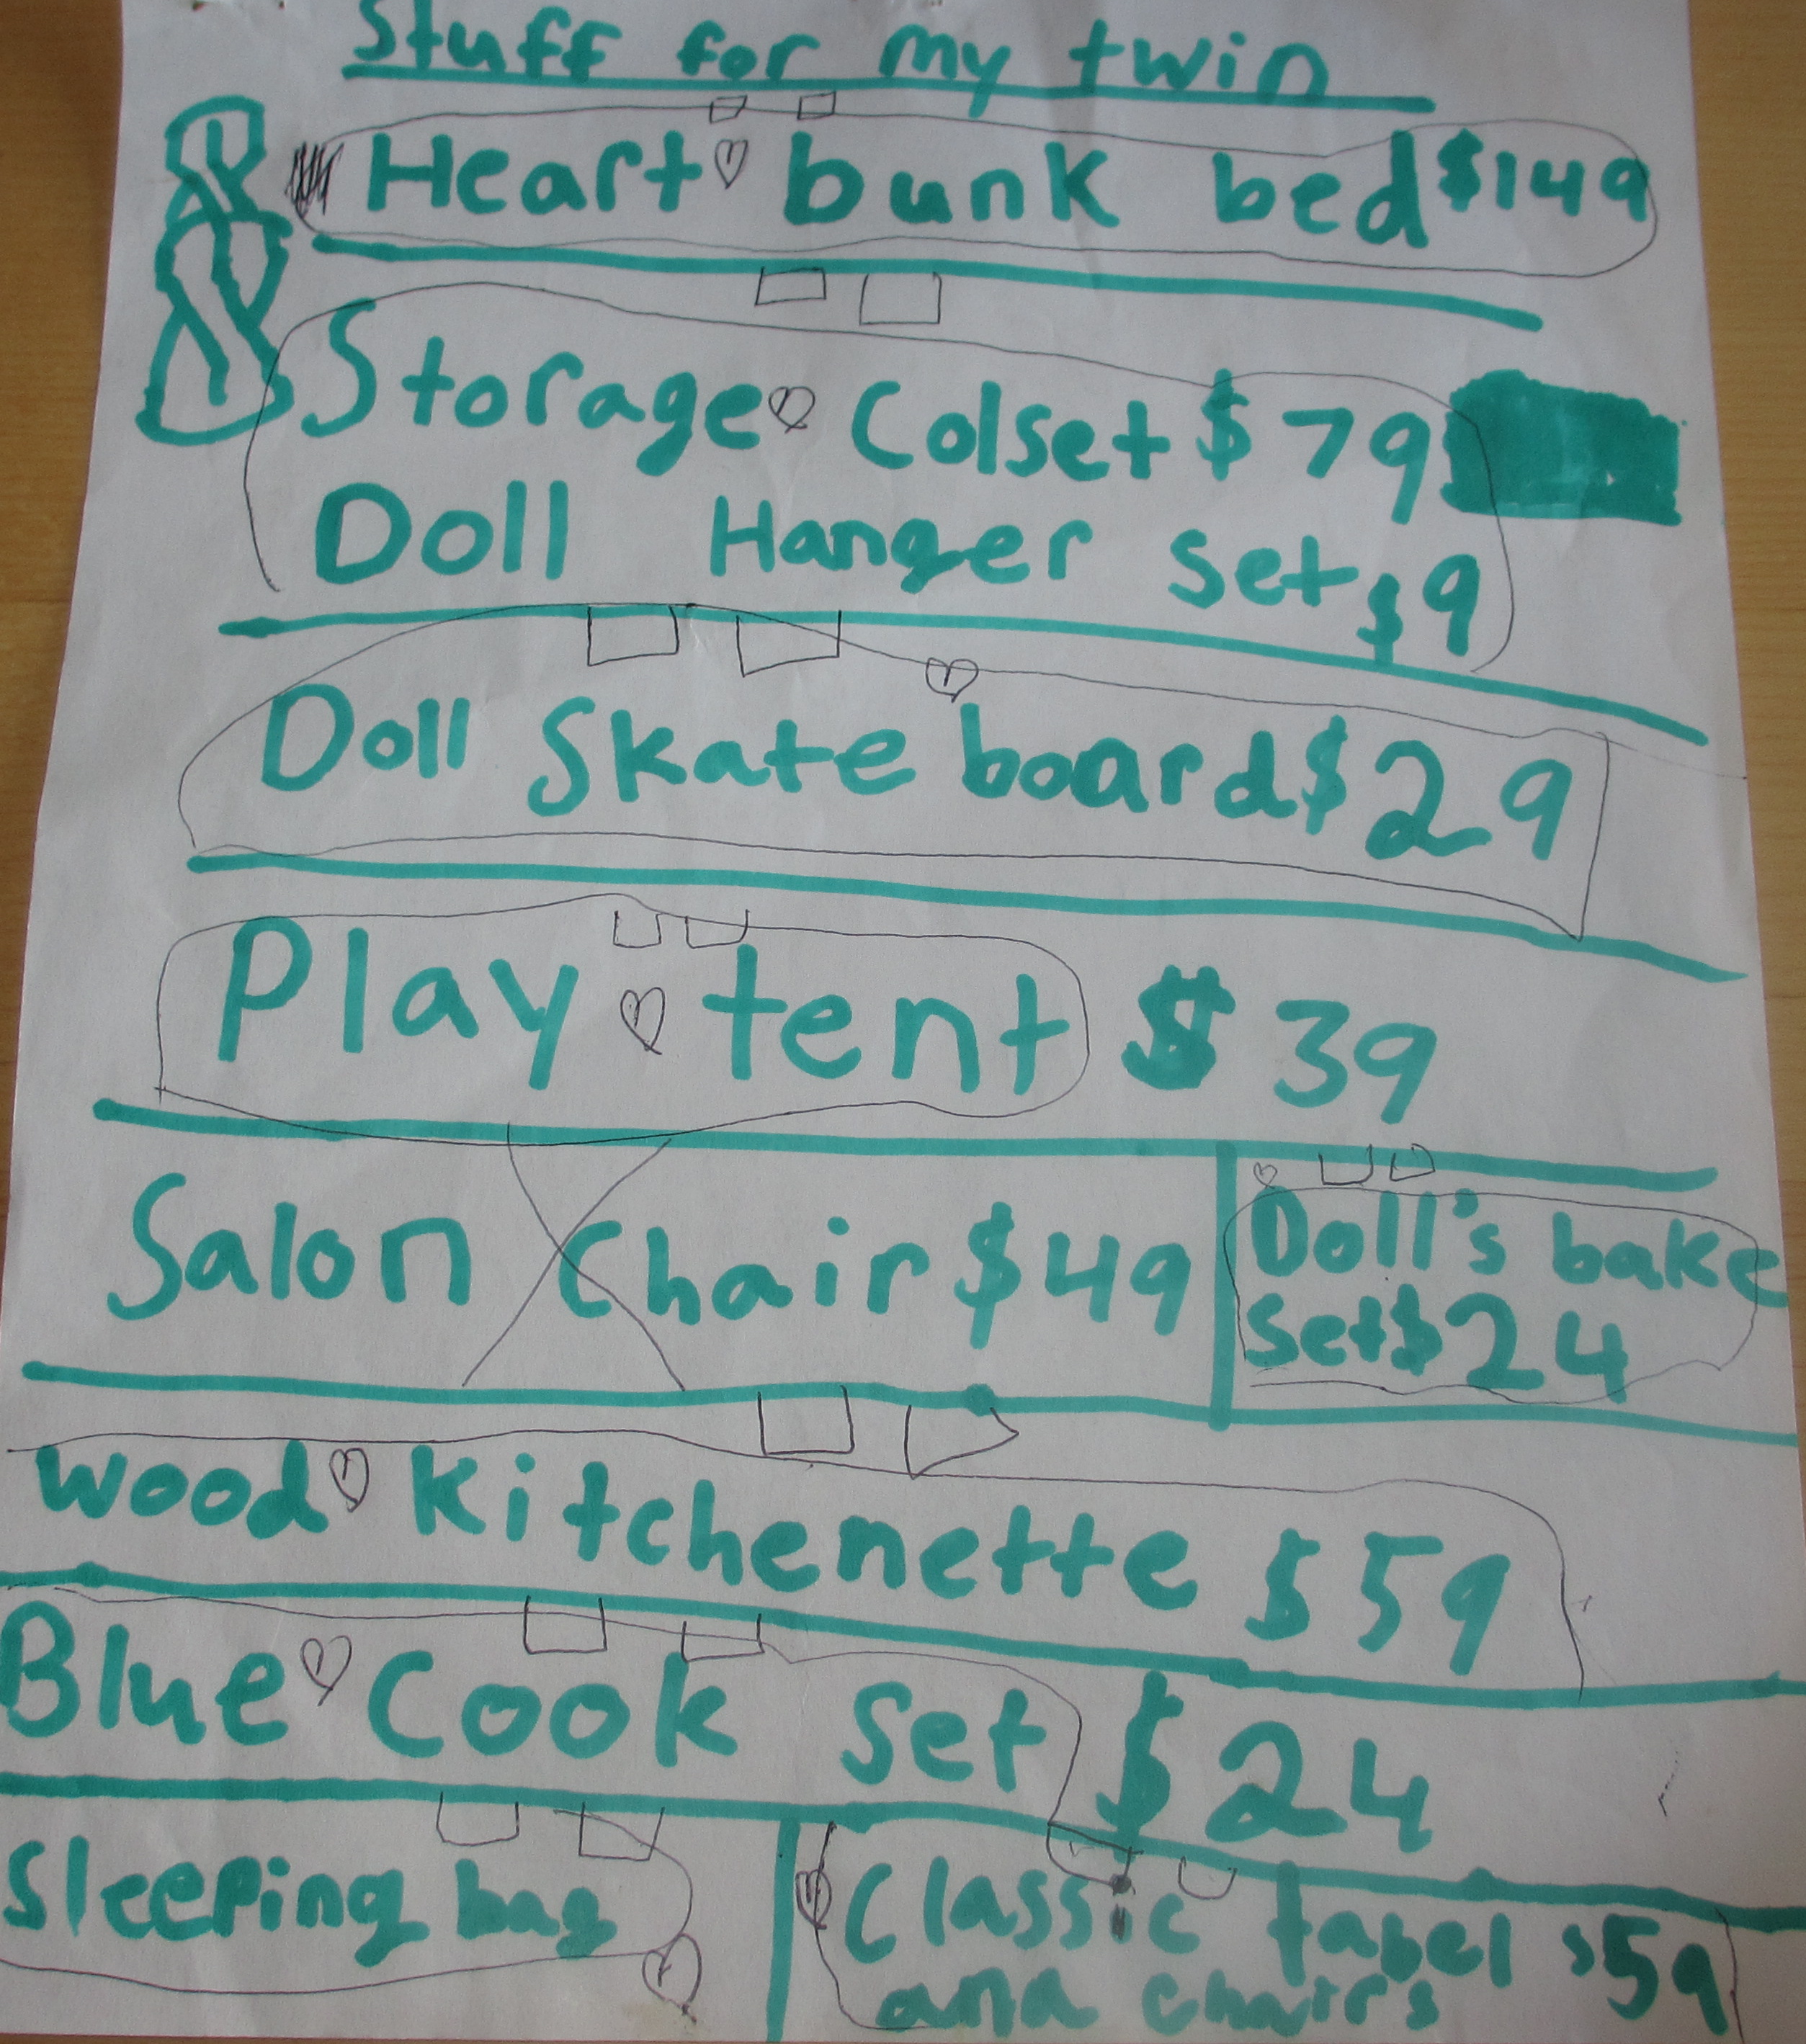 Stuff for my twin
Heart bunk bed $149
Storage Colset $79
Doll Hanger set $9
Doll Skate board $29
Play tent $39
Salon Chair $49
Doll's bake
set $24
wood kitchenette $59
Blue Cook set $24
Sleeping bag
Classic tabel $59
and chairs